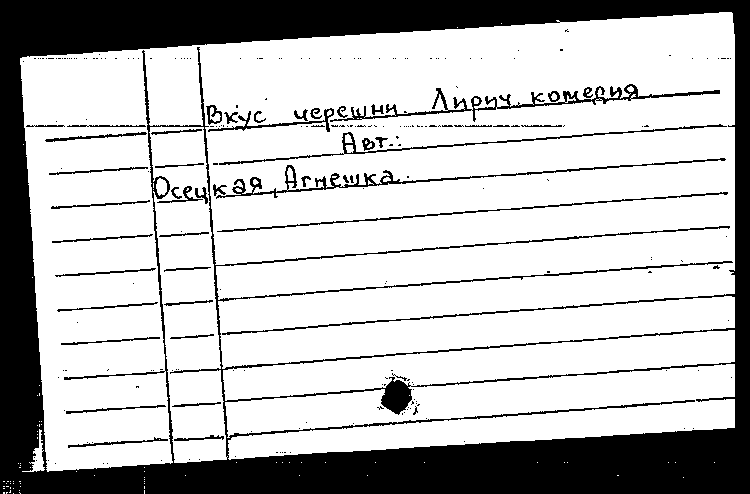 Вкус черешни. Лирич. комедия
Авт.:
Осецкая, Агнешка.